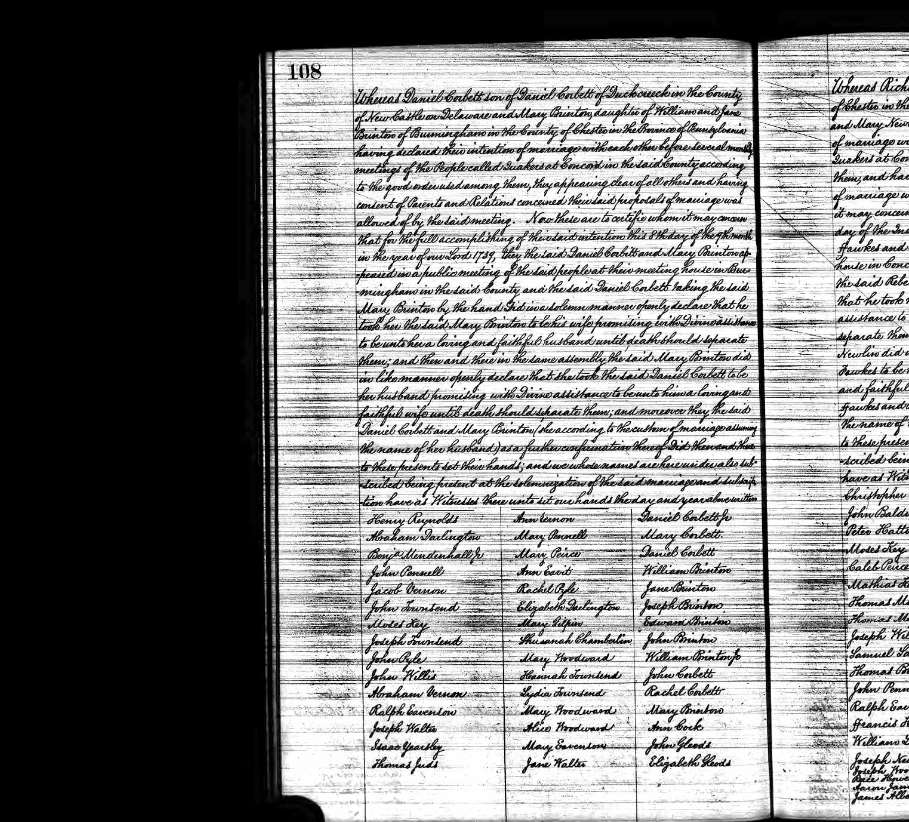 108
Whereas Daniel Corbett son of Daniel Corbett of Duckcreeck in the County
of New Castle on Delaware and Mary Brinton, daughter of William and Jane
Brinton of Burmingham in the County of Chester in the Province of Pensylvania
having declared their intention of marriage with each other before several monthly
meetings of the People called Quakers at Concord in the said County according
to the good order used among them, they appearing clear of all others and having
consent of Parents and Relations concerned their said proposals of marriage was
allowed of by the said meeting. Now these are to certifie whom it may concern
that for the full accomplishing of their said intention this 8th day of the 9th month
in the year of our Lord 1739, they the said Daniel Corbett and Mary Brinton ap-
-peared in a public meeting of the said people at their meeting house in Bur-
mingham in the said County and the said Daniel Corbett taking the said
Mary Brinton by the hand Did in a solemn manner openly declare that he
took her the said Mary Brinton to be his wife promising with Divine assistance
to be unto her a loving and faithful husband until death should separate
them; and then and there in the same assembly the said Mary Brinton did
in like manner openly declare that she took the said Daniel Corbett to be
her husband promising with Divine assistance to be unto him a loving and
faithful wife until death should separate them; and moreover they the said
Daniel Corbett and Mary Brinton (she according to the custom of marriage assuming
the name of her husband) as a further confirmation thereof Did then and there
to these presents set their hands; and we whose names are hereunder also sub-
-scribed being present at the solemnization of the said marriage and subscrip
tion have as Witnesses there unto set our hands the day and year above written
Henry Reynolds Ann Vernon Daniel Corbett Jr
Abraham Darlington Mary Pennell Mary Corbett
Benja Mendenhall Jr Mary Peirce Daniel Corbett
John Pennell Ann William Brinton
Jacob Vernon Rachel Pyle Jane Brinton
John Townsend Elizabeth Darlington Joseph Brinton
Moses Key Mary Gilpin Edward Brinton
Joseph Townsend Shusanah Chamberlin John Brinton
John Pyle Mary Woodward William Brinton Jr
John Willis Hannah Townsend John Corbett
Abraham Vernon Lydia Townsend Rachel Corbett
Ralph Eavenson Mary Woodward Mary Brinton
Joseph Walter Alice Woodward Ann Cork
Isaac Yearsley Mary Eavenson John
Thomas Jane Walter Elizabeth
Whereas Rich
of Chester in the
and Mary New
of marriage w
Quakers at Con
them, and hav
of marriage w
it may concern
day of the
Hawkes and
house in Conc
the said Rebe
that he took
assistance to
separate them
Newlin did
Hawkes to be
and faithful
Hawkes and
the name of
to these presen
-scribed bein
have as Witn
Christopher
John Balds
Peter Hatt
Moses Key
Caleb Peirce
Mathias
Thomas Ma
Thomas Ma
Joseph Wil
Samuel
Thomas
John Penn
Ralph Eav
Francis
William
Joseph New
Joseph Woo
Aaron Jam
James